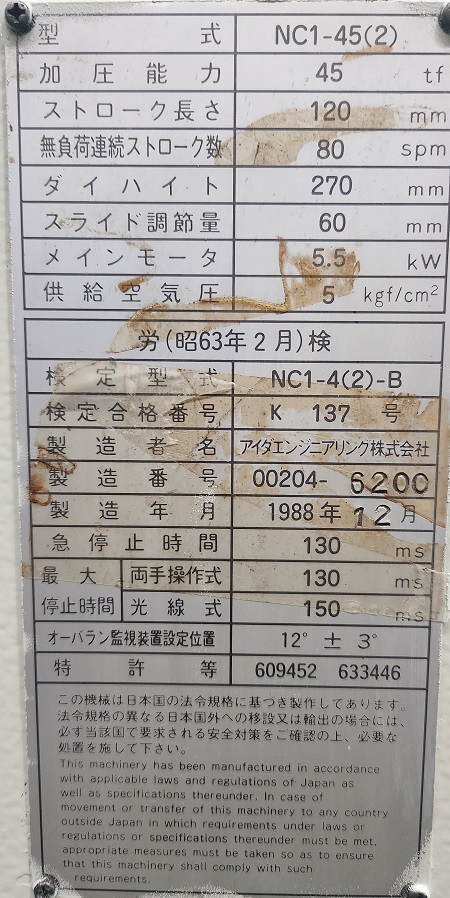 型式 NC1-45(2)
加圧能力 45 tf
ストローク長さ 120 mm
無負荷連続ストローク数 80 spm
ダイハイト 270 mm
スライド調節量 60 mm
メインモータ 5.5 kW
供給空気圧 5 kgf/cm²
労(昭63年2月)検
検定型式 NC1-4(2)-B
検定合格番号 K 137 号
製造者名 アイダエンジニアリング株式会社
製造番号 00204-6200
製造年月 1988年12月
急停止時間 130 ms
最大停止時間 両手操作式 130 ms
光線式 150 ms
オーバラン監視装置設定位置 12° ± 3°
特許等 609452 633446
この機械は日本国の法令規格に基づき製作してあります。
法令規格の異なる日本国外への移設又は輸出の場合には、
必ず当該国で要求される安全対策をご確認の上、必要な
処置を施して下さい。
This machinery has been manufactured in accordance
with applicable laws and regulations of Japan as
well as specifications thereunder. In case of
movement or transfer of this machinery to any country
outside Japan in which requirements under laws or
regulations or specifications thereunder must be met,
appropriate measures must be taken so as to ensure
that this machinery shall comply with such
requirements.